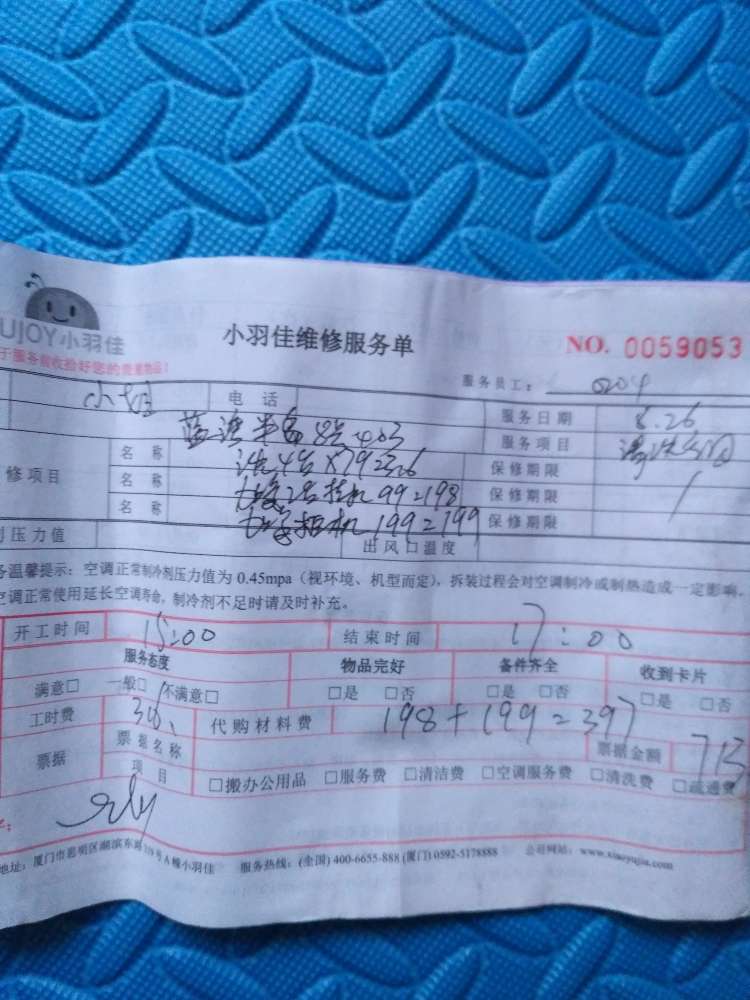 UJOY小羽佳
小羽佳维修服务单
NO. 0059053
服务员工： 0204
电 话
服务日期 8.26
8号403
服务项目 清洗
修项目
名 称 洗4台×79=316
保修期限
名 称 2台挂机 99=198
保修期限
名 称 柜机 199=199
保修期限
压力值
出风口温度
温馨提示：空调正常制冷剂压力值为 0.45mpa（视环境、机型而定），拆装过程会对空调制冷或制热造成一定影响，
调正常使用延长空调寿命，制冷剂不足时请及时补充。
开工时间 15:00 结束时间 17:00
服务态度 物品完好 备件齐全 收到卡片
满意□ 一般□ 不满意□ □是 □否 □是 □否 □是 □否
工时费 316 代购材料费 198+199=397
票据 票据名称 票据金额 713
项 目 □搬办公用品 □服务费 □清洁费 □空调服务费 □清洗费 □疏通费
地址：厦门市思明区湖滨东路319号A幢小羽佳 服务热线：(全国) 400-6655-888 (厦门) 0592-5178888 公司网站：www.xiaoyujia.com